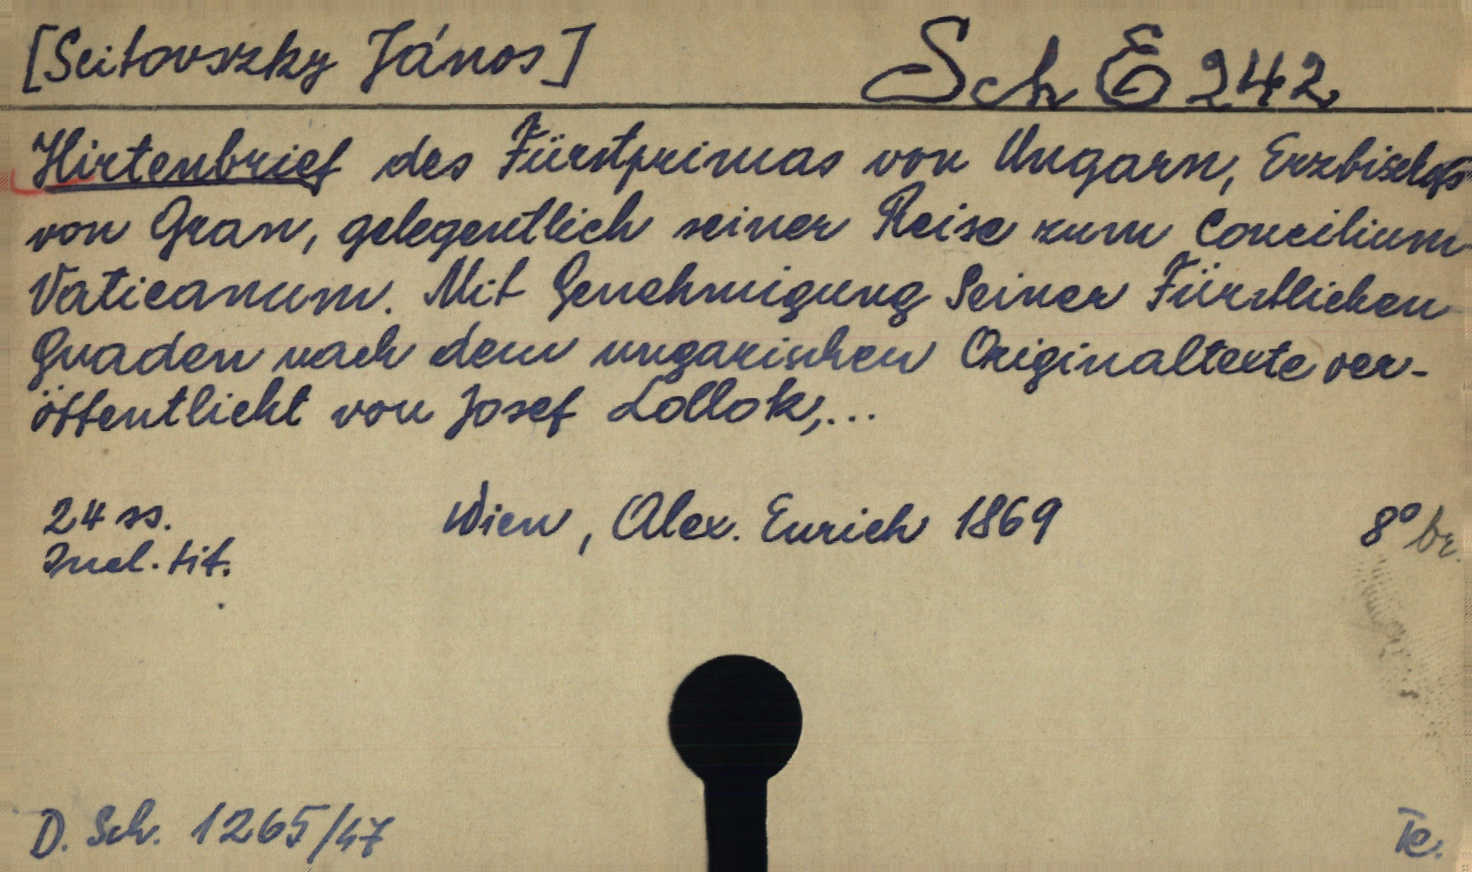 [Scitovszky János]
Sch E 242
Hirtenbrief des Fürstprimas von Ungarn, Erzbischofs
von Gran, gelegentlich seiner Reise zum Concilium
Vaticanum. Mit Genehmigung Seiner Fürstlichen
Gnaden nach dem ungarischen Originaltexte ver-
öffentlicht von Josef Lollok,...
24 ss. Wien, Alex. Eurich 1869 8° br.
Incl. tit.
D. Sch. 1265/47 Te.